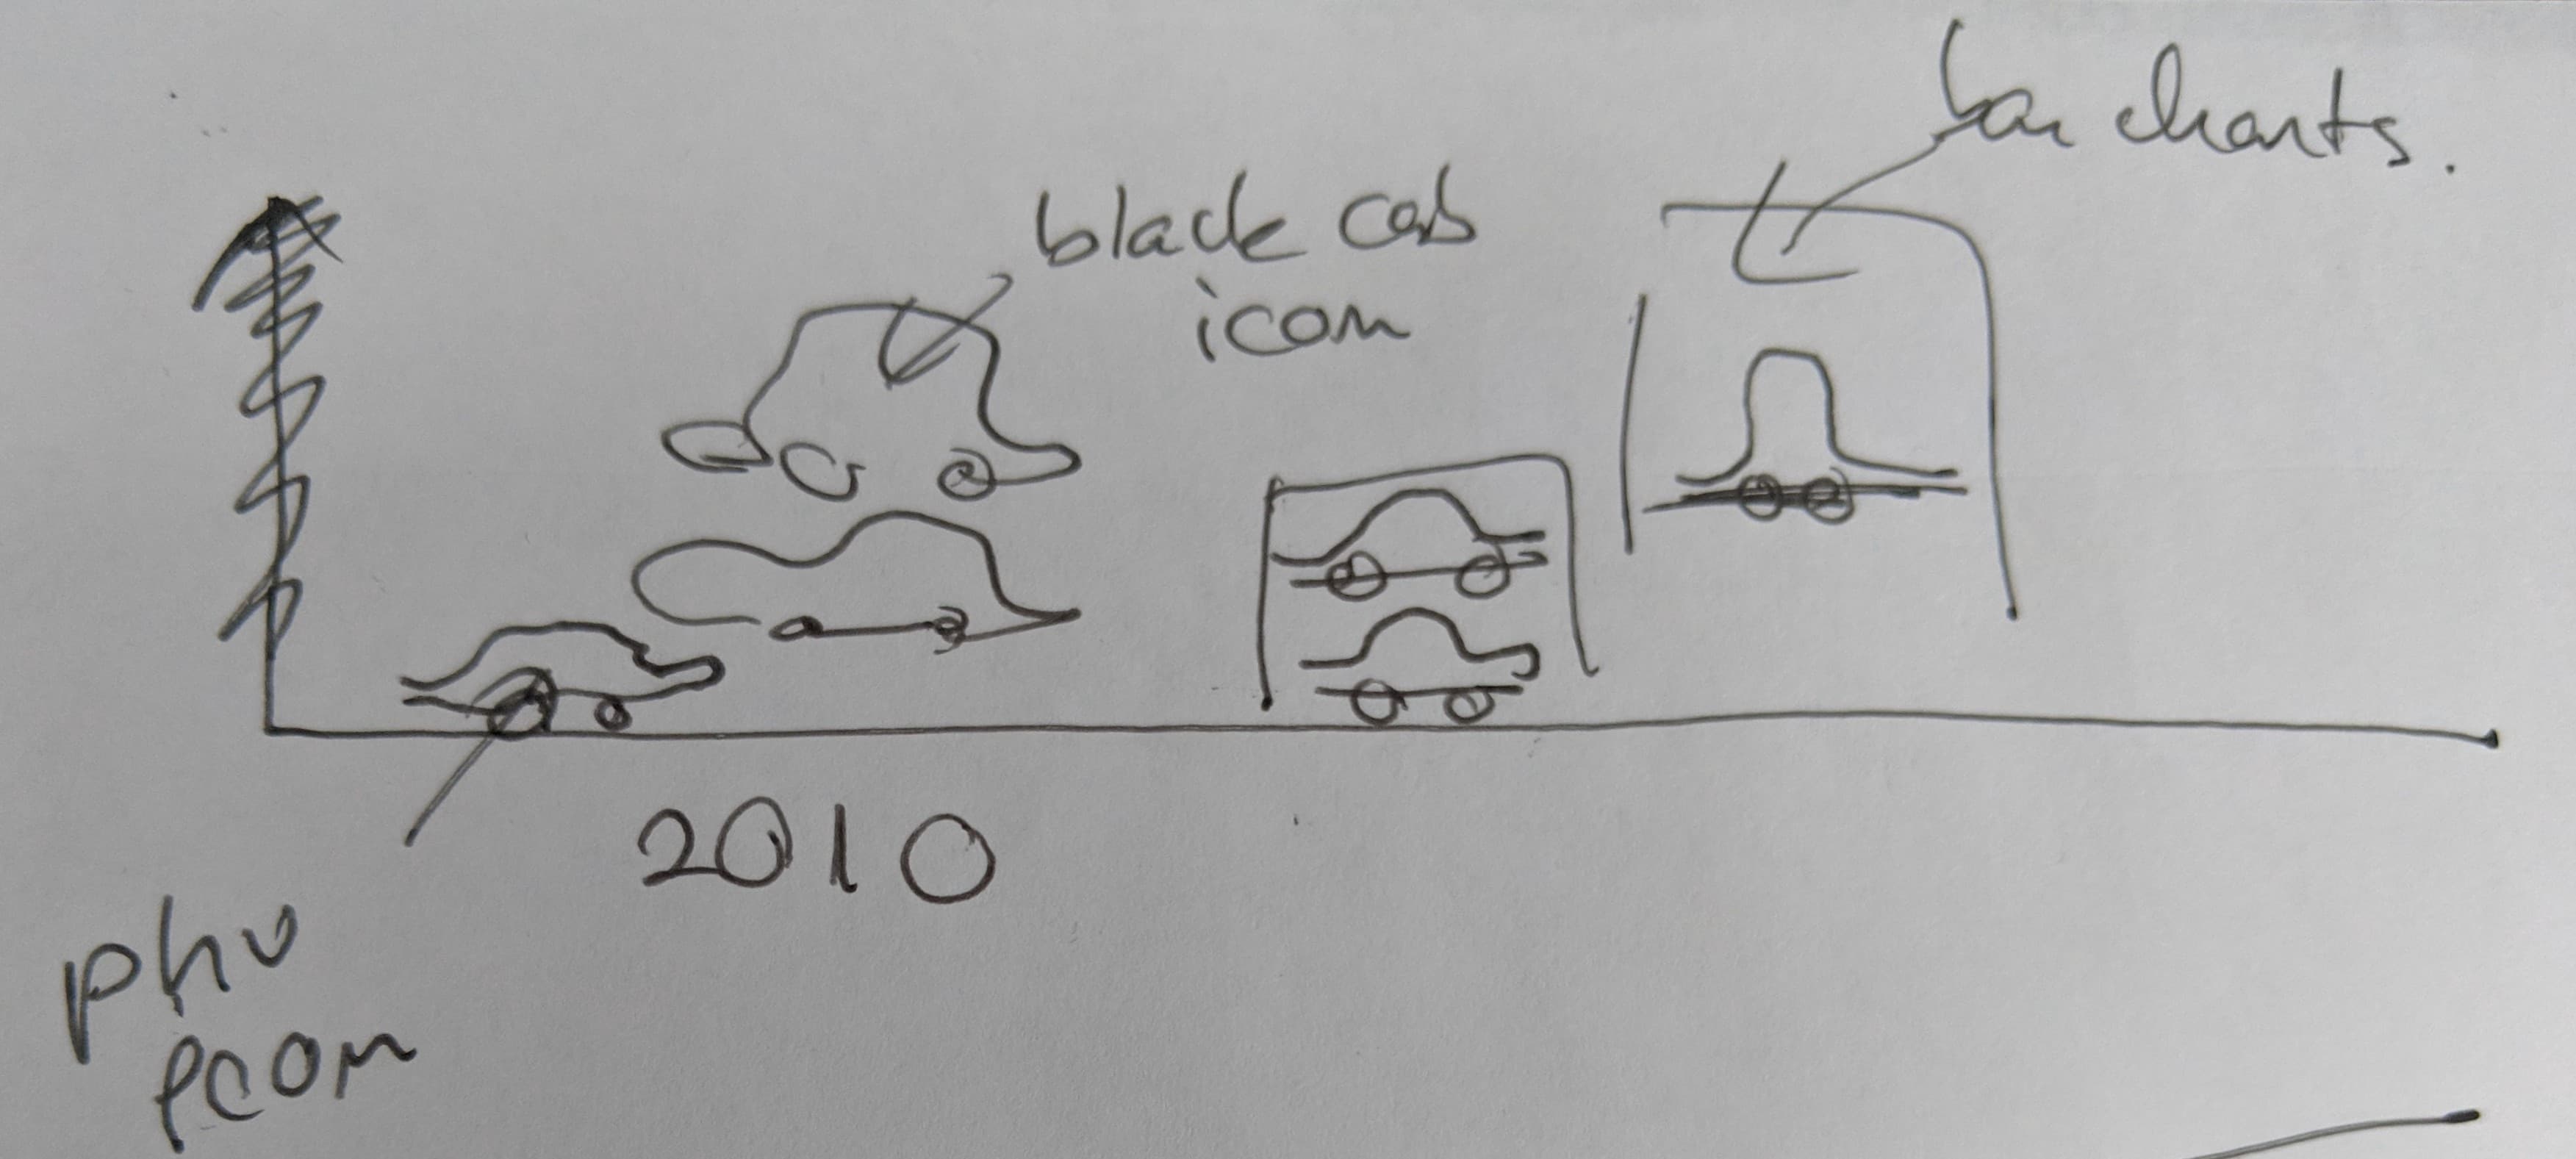 bar charts.
black cab
icon
2010
phv
icon